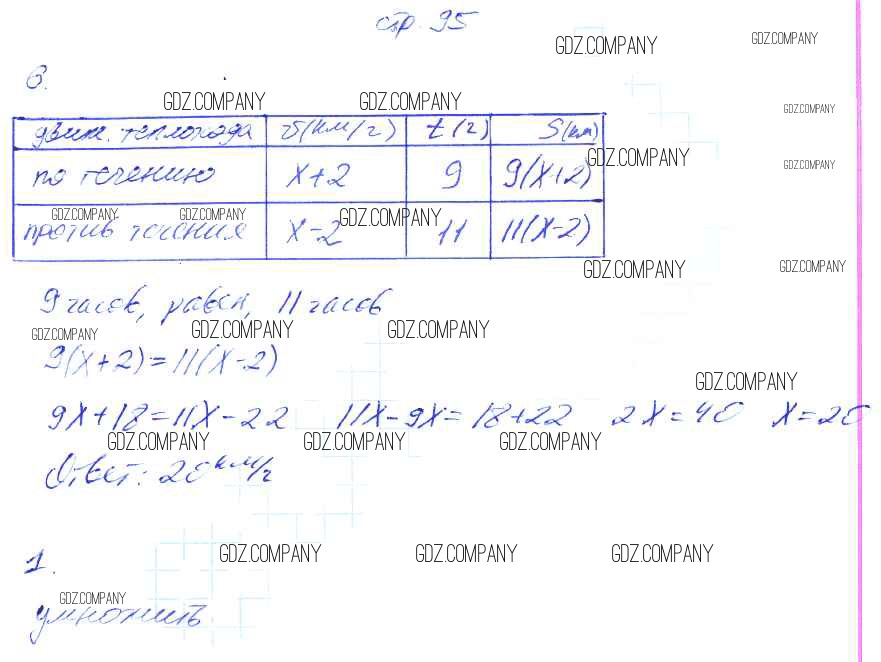 стр. 95
GDZ.COMPANY GDZ.COMPANY
6.
GDZ.COMPANY GDZ.COMPANY GDZ.COMPANY
движ. теплохода v(км/ч) t(ч) S(км)
GDZ.COMPANY GDZ.COMPANY
по течению x+2 9 9(x+2)
GDZ.COMPANY GDZ.COMPANY GDZ.COMPANY
против течения x-2 11 11(x-2)
GDZ.COMPANY GDZ.COMPANY
9 часов, равен, 11 часов
GDZ.COMPANY GDZ.COMPANY GDZ.COMPANY
9(x+2)=11(x-2)
GDZ.COMPANY
9x+18=11x-22 11x-9x=18+22 2x=40 x=20
GDZ.COMPANY GDZ.COMPANY GDZ.COMPANY
Ответ: 20 км/ч
GDZ.COMPANY GDZ.COMPANY GDZ.COMPANY
1.
GDZ.COMPANY
умножить